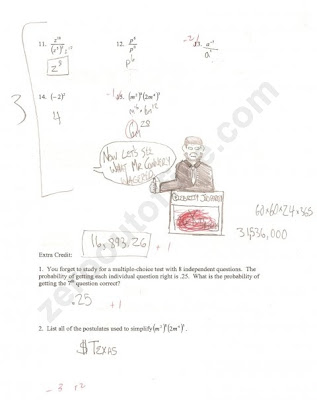 11. z¹⁶/(z⁴)² z¹² 12. p⁹/p³ -2 13. a⁻¹/a¹
z⁸ p⁶
3
14. (-2)² -1 15. (m³)⁴(2m⁴)³
4 m¹² 6m¹²
6m²⁸
NOW LET'S SEE
WHAT MR. CONNERY
WAGERED
CELEBRITY JEOPARDY
60×60×24×365
31,536,000
16,893.26 + 1
Extra Credit:
1. You forget to study for a multiple-choice test with 8 independent questions. The
probability of getting each individual question right is .25. What is the probability of
getting the 7th question correct?
.25 + 1
2. List all of the postulates used to simplify
$ TEXAS
- 3 + 2
zeroutopoe.com